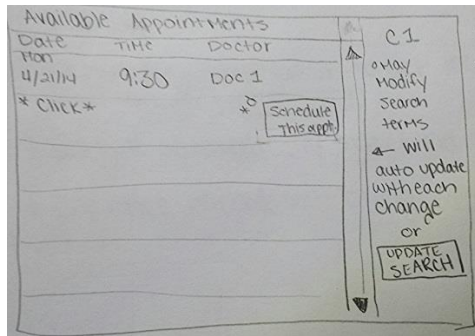 Available Appointments
Date Time Doctor
Mon
4/21/14 9:30 Doc 1
* Click* *
Schedule
This appt.
C1
May
Modify
Search
terms
Will
auto update
with each
change
or
UPDATE
SEARCH